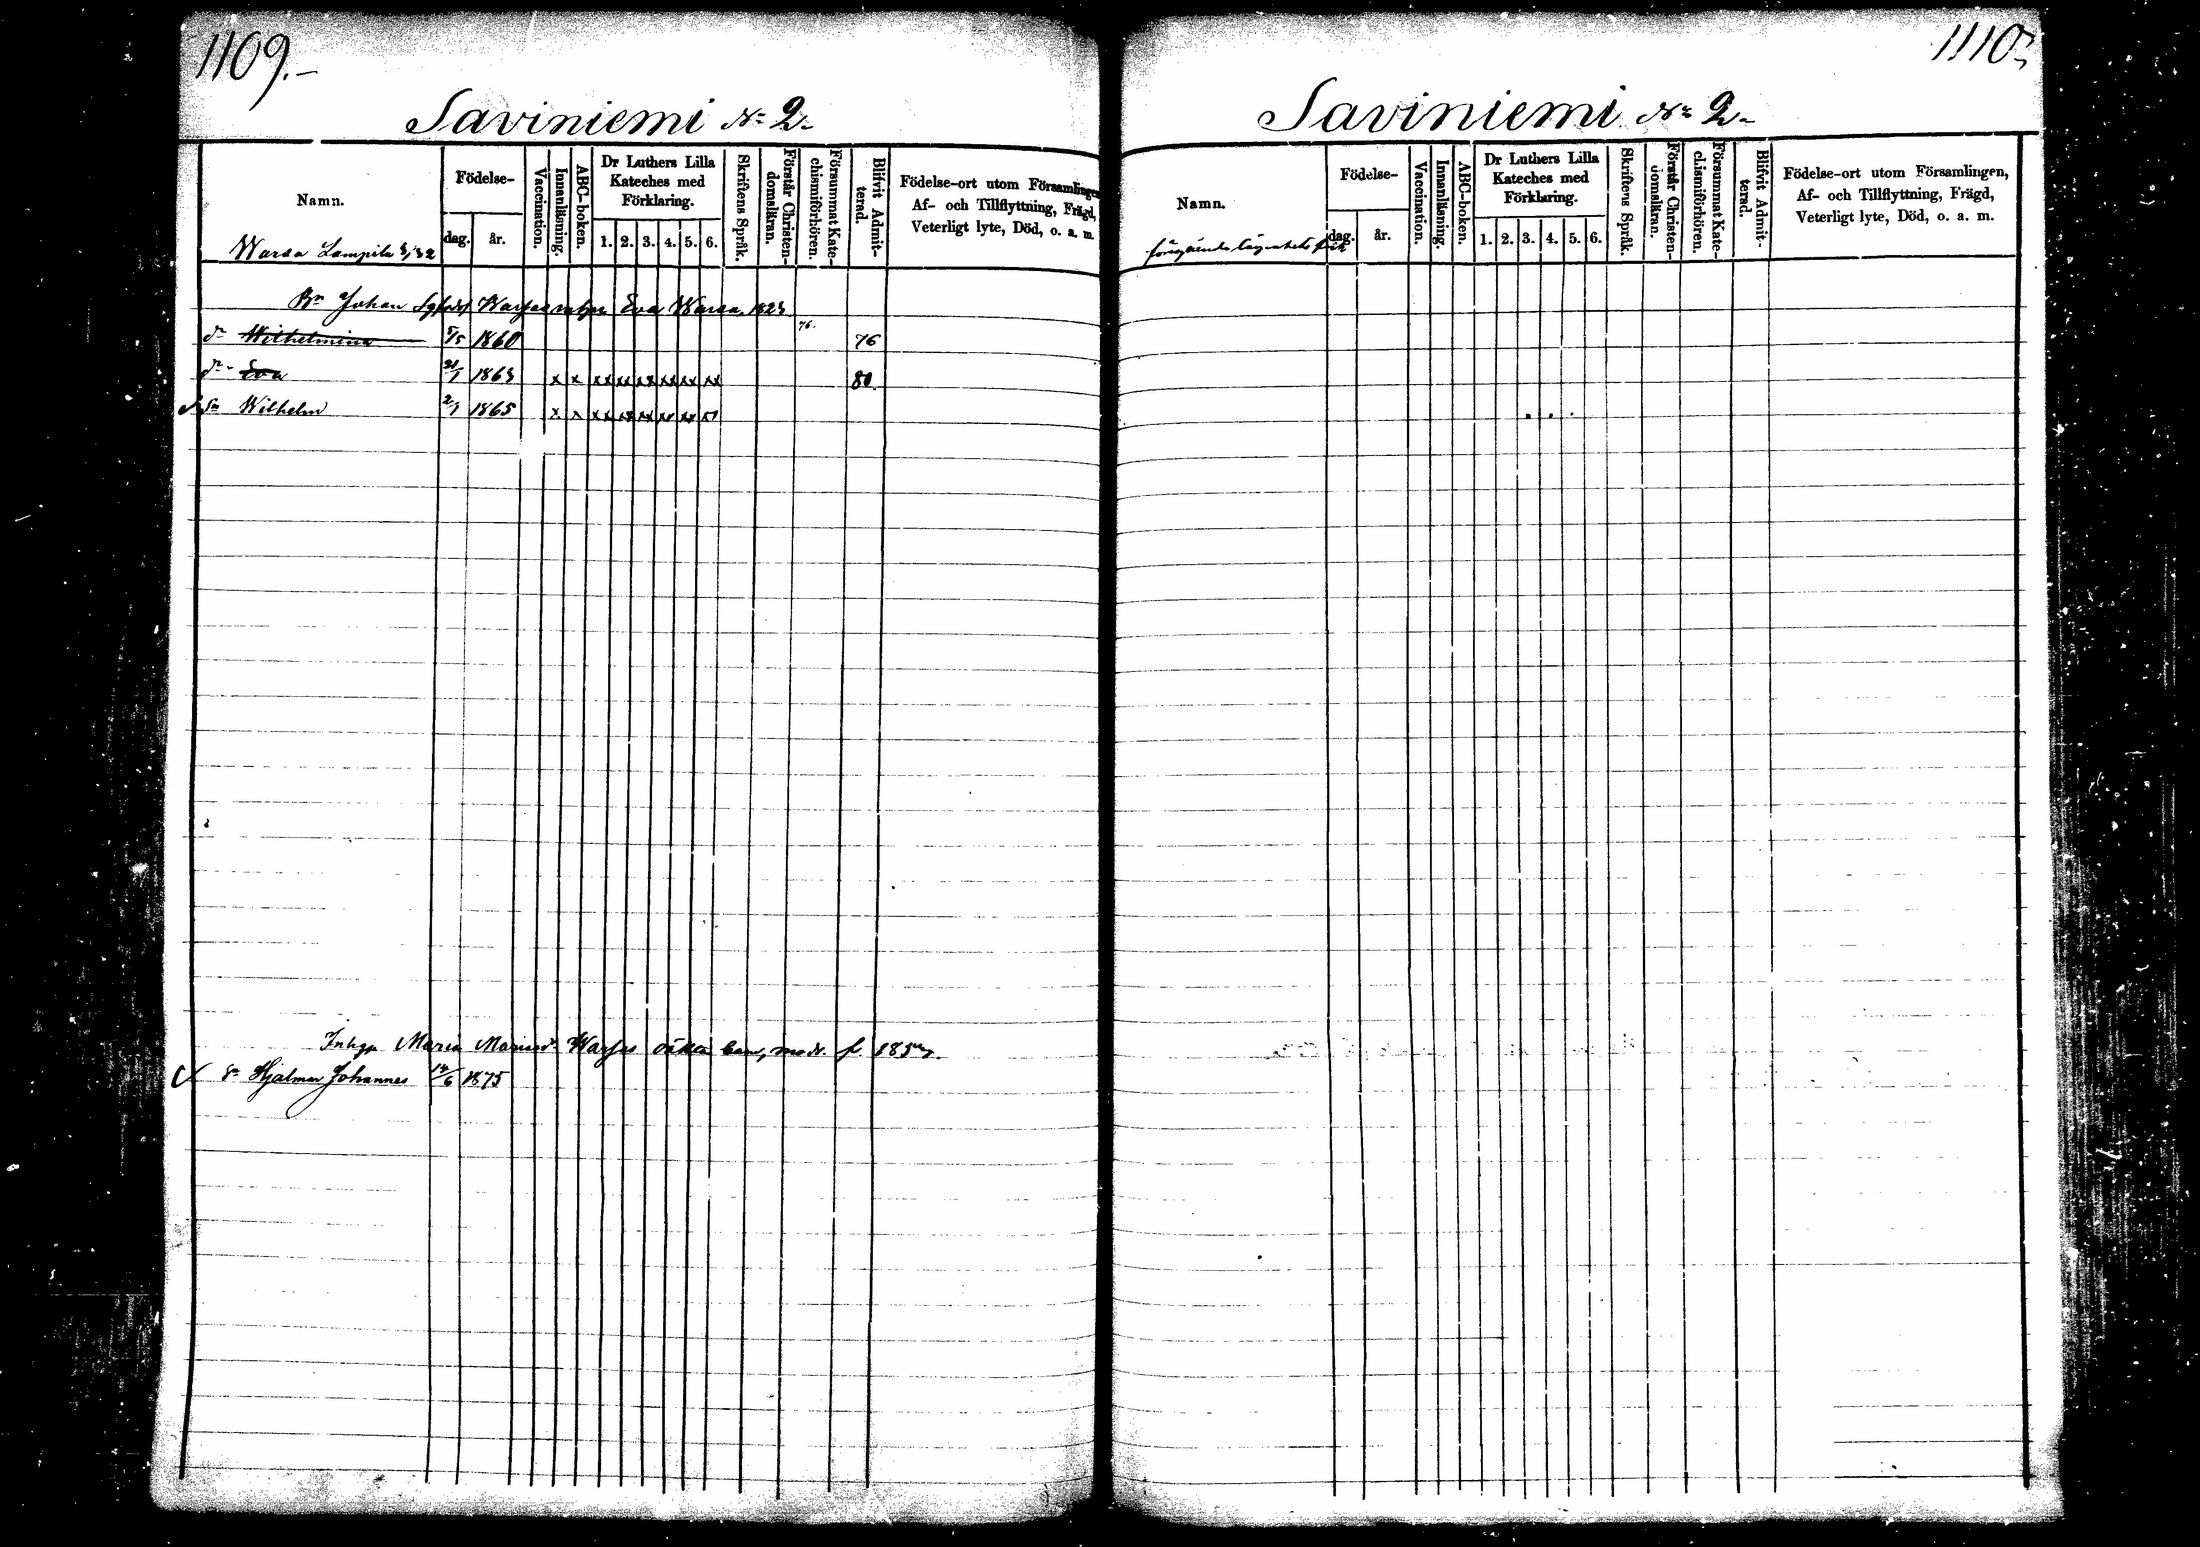 1109.-
Saviniemi No 2.
Namn.
Födelse-
dag.
år.
Vaccination.
Innanläsning.
ABC-boken.
Dr Luthers Lilla
Kateches med
Förklaring.
1. 2. 3. 4. 5. 6.
Skriftens Språk.
Förstår Christen-
domsläran.
Försummat Kate-
chismiförhören.
Blifvit Admit-
terad.
Födelse-ort utom Församlingen,
Af- och Tillflyttning, Frägd,
Veterligt lyte, Död, o. a. m.
Warsa Lampila
Bn Johan Eva Warsa 1823
76.
dr Wilhelmina 5/5 1860 76
dr Eva 21/1 1863 x x xx xx xx xx xx xx 80.
Sn Wilhelm 2/1 1865 x x xx xx xx xx xx
Maria Warsas barn, modr. f
Sn Hjalmar Johannes 14/6 1875
1110.
Saviniemi No 2.
Namn.
Födelse-
dag.
år.
Vaccination.
Innanläsning.
ABC-boken.
Dr Luthers Lilla
Kateches med
Förklaring.
1. 2. 3. 4. 5. 6.
Skriftens Språk.
Förstår Christen-
domsläran.
Försummat Kate-
chismiförhören.
Blifvit Admit-
terad.
Födelse-ort utom Församlingen,
Af- och Tillflyttning, Frägd,
Veterligt lyte, Död, o. a. m.
föregående